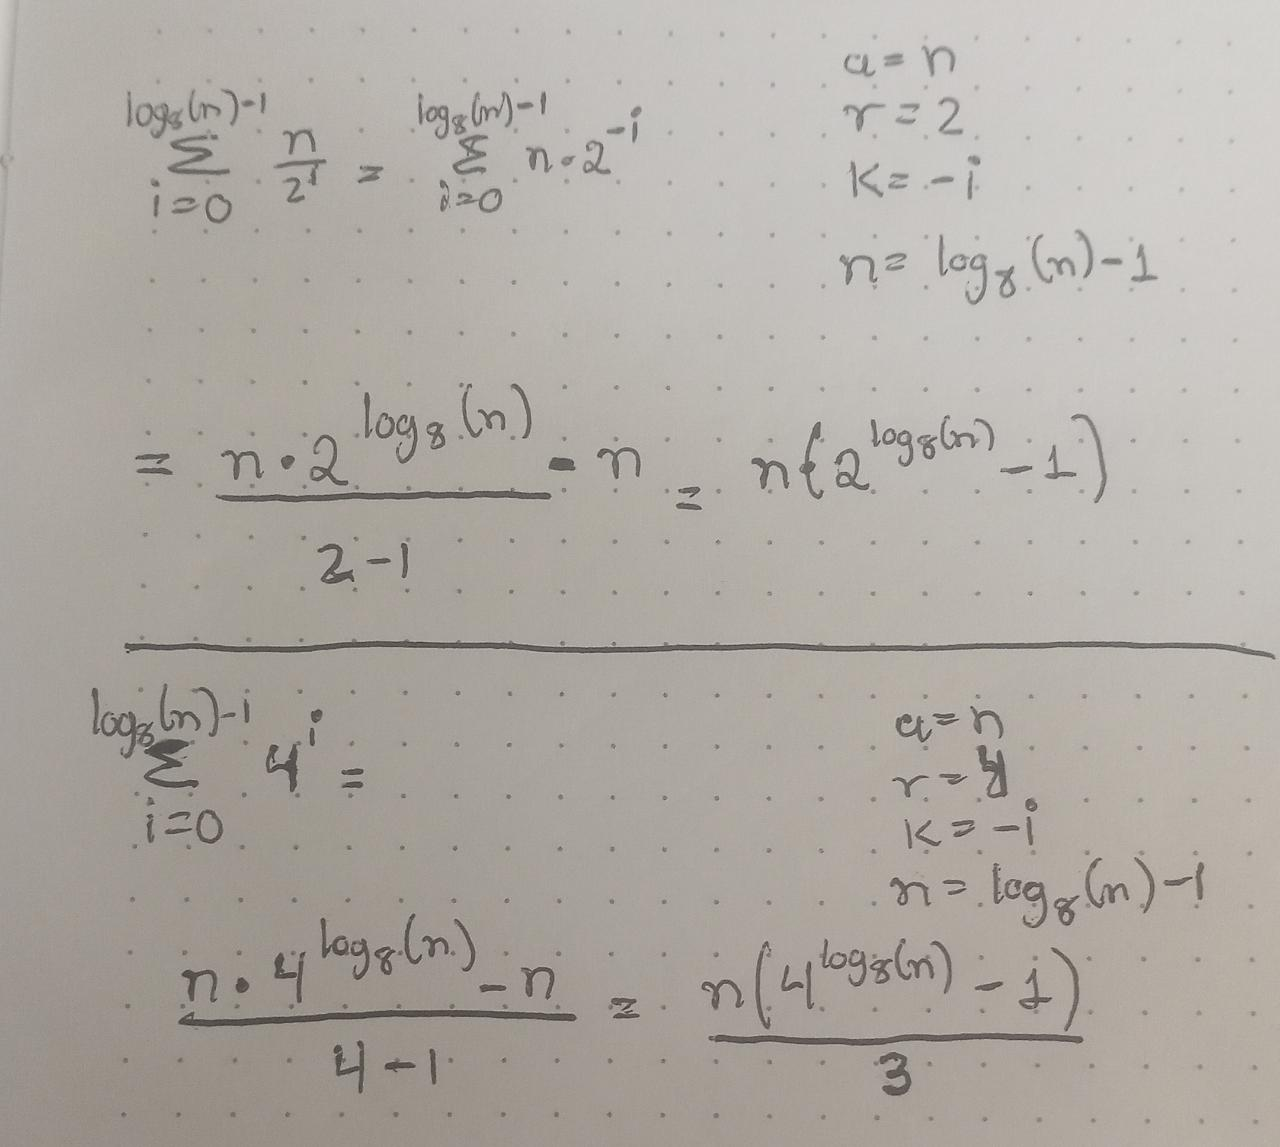 log₈(n)-1 ∑ i=0 n/2^i = log₈(n)-1 ∑ i=0 n·2^-i
a = n
r = 2
k = -i
n = log₈(n)-1
= (n·2^log₈(n))/(2-1) - n = n(2^log₈(n) - 1)
log₈(n)-i ∑ i=0 4^i =
a = n
r = 4
k = -i
n = log₈(n)-1
(n·4^log₈(n) - n)/(4-1) = n(4^log₈(n) - 1)/3